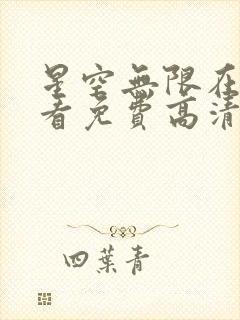 星空無限在
看免費高清
四葉青